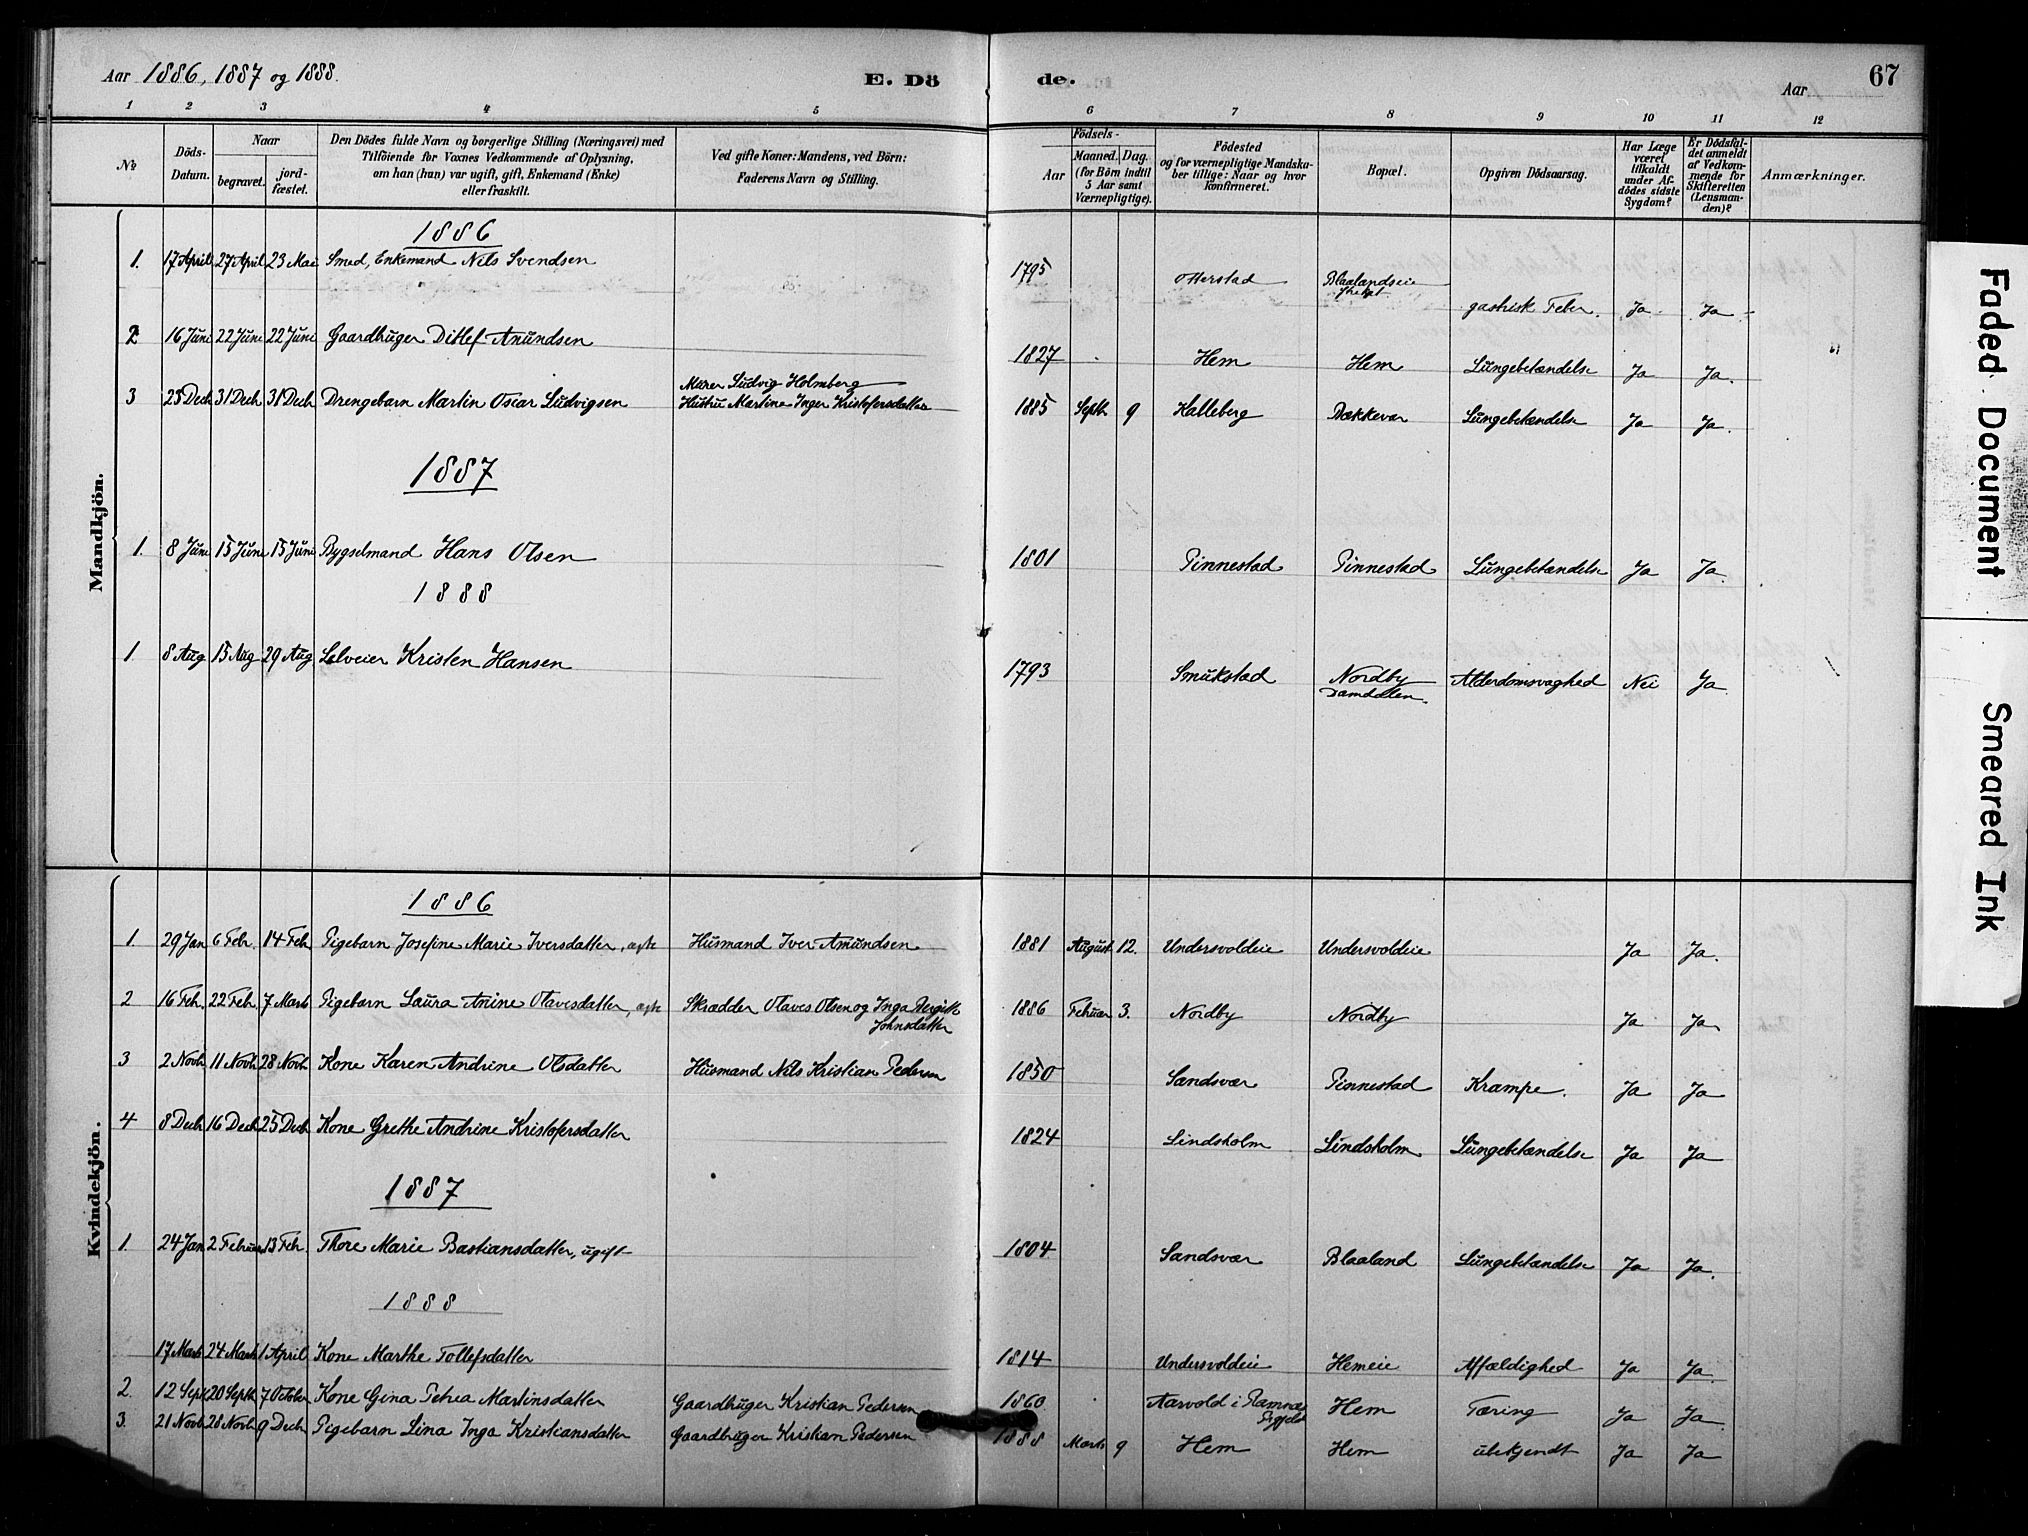 Aar 1886, 1887 og 1888.
E. Döde.
Aar
67
1 2 3 4 5 6 7 8 9 10 11 12
№
Döds-Datum.
Naar
begravet.
jord-fæstet.
Den Dödes fulde Navn og borgerlige Stilling (Næringsvei) med
Tilföiende for Voxnes Vedkommende af Oplysning,
om han (hun) var ugift, gift, Enkemand (Enke)
eller fraskilt.
Ved gifte Koner: Mandens, ved Börn:
Faderens Navn og Stilling.
Födsels-
Aar
Maaned. Dag.
(for Börn indtil
5 Aar samt
Værnepligtige).
Födested
og for værnepligtige Mandska-
ber tillige: Naar og hvor
konfirmeret.
Bopæl.
Opgiven Dödsaarsag.
Har Læge
været
tilkaldt
under Af-
dödes sidste
Sygdom?
Er Dödsfal-
det anmeldt
af Vedkom-
mende for
Skifteretten
(Lensman-
den)?
Anmærkninger.
Mandkjön.
1886
1. 17 April 27 April 23 Mai Smed, Enkemand Nils Svendsen 1795 Otterstad Blaalandseie gastrisk Feber. Ja Ja
2 16 Juni 22 Juni 22 Juni Gaardbruger Ditlef Amundsen 1827 Hem Hem Lungebetændelse Ja Ja.
3 23 Decb 31 Decb 31 Decb Drengebarn Martin Oscar Ludvigsen Murer Ludvig Holmberg
Hustru Martine Inger Kristofersdatter 1885 Septb 9 Kalleberg Bækkevar Lungebetændelse Ja Ja.
1887
1. 8 Juni 15 Juni 15 Juni Bygselmand Hans Olsen 1801 Pinnestad Pinnestad Lungebetændelse Ja Ja.
1888
1 8 Aug 15 Aug 29 Aug Selveier Kristen Hansen 1793 Smukstad Nordby
Damdalen Alderdomsvaghed Nei Ja
Kvindekjön.
1886
1. 29 Jan 6 Febr. 14 Feb Pigebarn Josefine Marie Iversdatter, ægte Husmand Iver Amundsen 1881 August 12. Undersvoldeie Undersvoldeie Ja Ja.
2 16 Feb. 22 Feb. 7 Marts Pigebarn Laura Anine Olavesdatter, ægte Skrædder Olaves Olsen og Inga Bergitte
Johnsdatter 1886 Februar 3. Nordby Nordby Ja Ja
3 2 Novb 11 Novb 28 Novb Kone Karen Andrine Olsdatter Husmand Nils Kristian Pedersen 1850 Sandsvær Pinnestad Krampe. Ja Ja
4 8 Decb 16 Decb 25 Decb Kone Grethe Andrine Kristofersdatter 1824 Lindsholm Lindsholm Lungebetændelse Ja Ja
1887
1. 24 Jan 2 Februar 13 Feb. Thore Marie Bastiansdatter, ugift 1804 Sandsvær Blaaland Lungebetændelse Ja Ja.
1888
17 Marts 24 Marts 1 April Kone Marthe Tollefsdatter 1814 Undersvoldeie Hemeie Affældighed Ja Ja.
2. 12 Septb 20 Septb 7 October Kone Gina Petrea Martinsdatter Gaardbruger Kristian Pedersen 1860 Aarvold i Ramnæs
Prgjeld Hem Tæring Ja Ja
3. 21 Novb 28 Novb 9 Decb Pigebarn Lina Inga Kristiansdatter Gaardbruger Kristian Pedersen 1888 Marts 9 Hem Hem ubekjendt Ja Ja
Faded Document
Smeared Ink